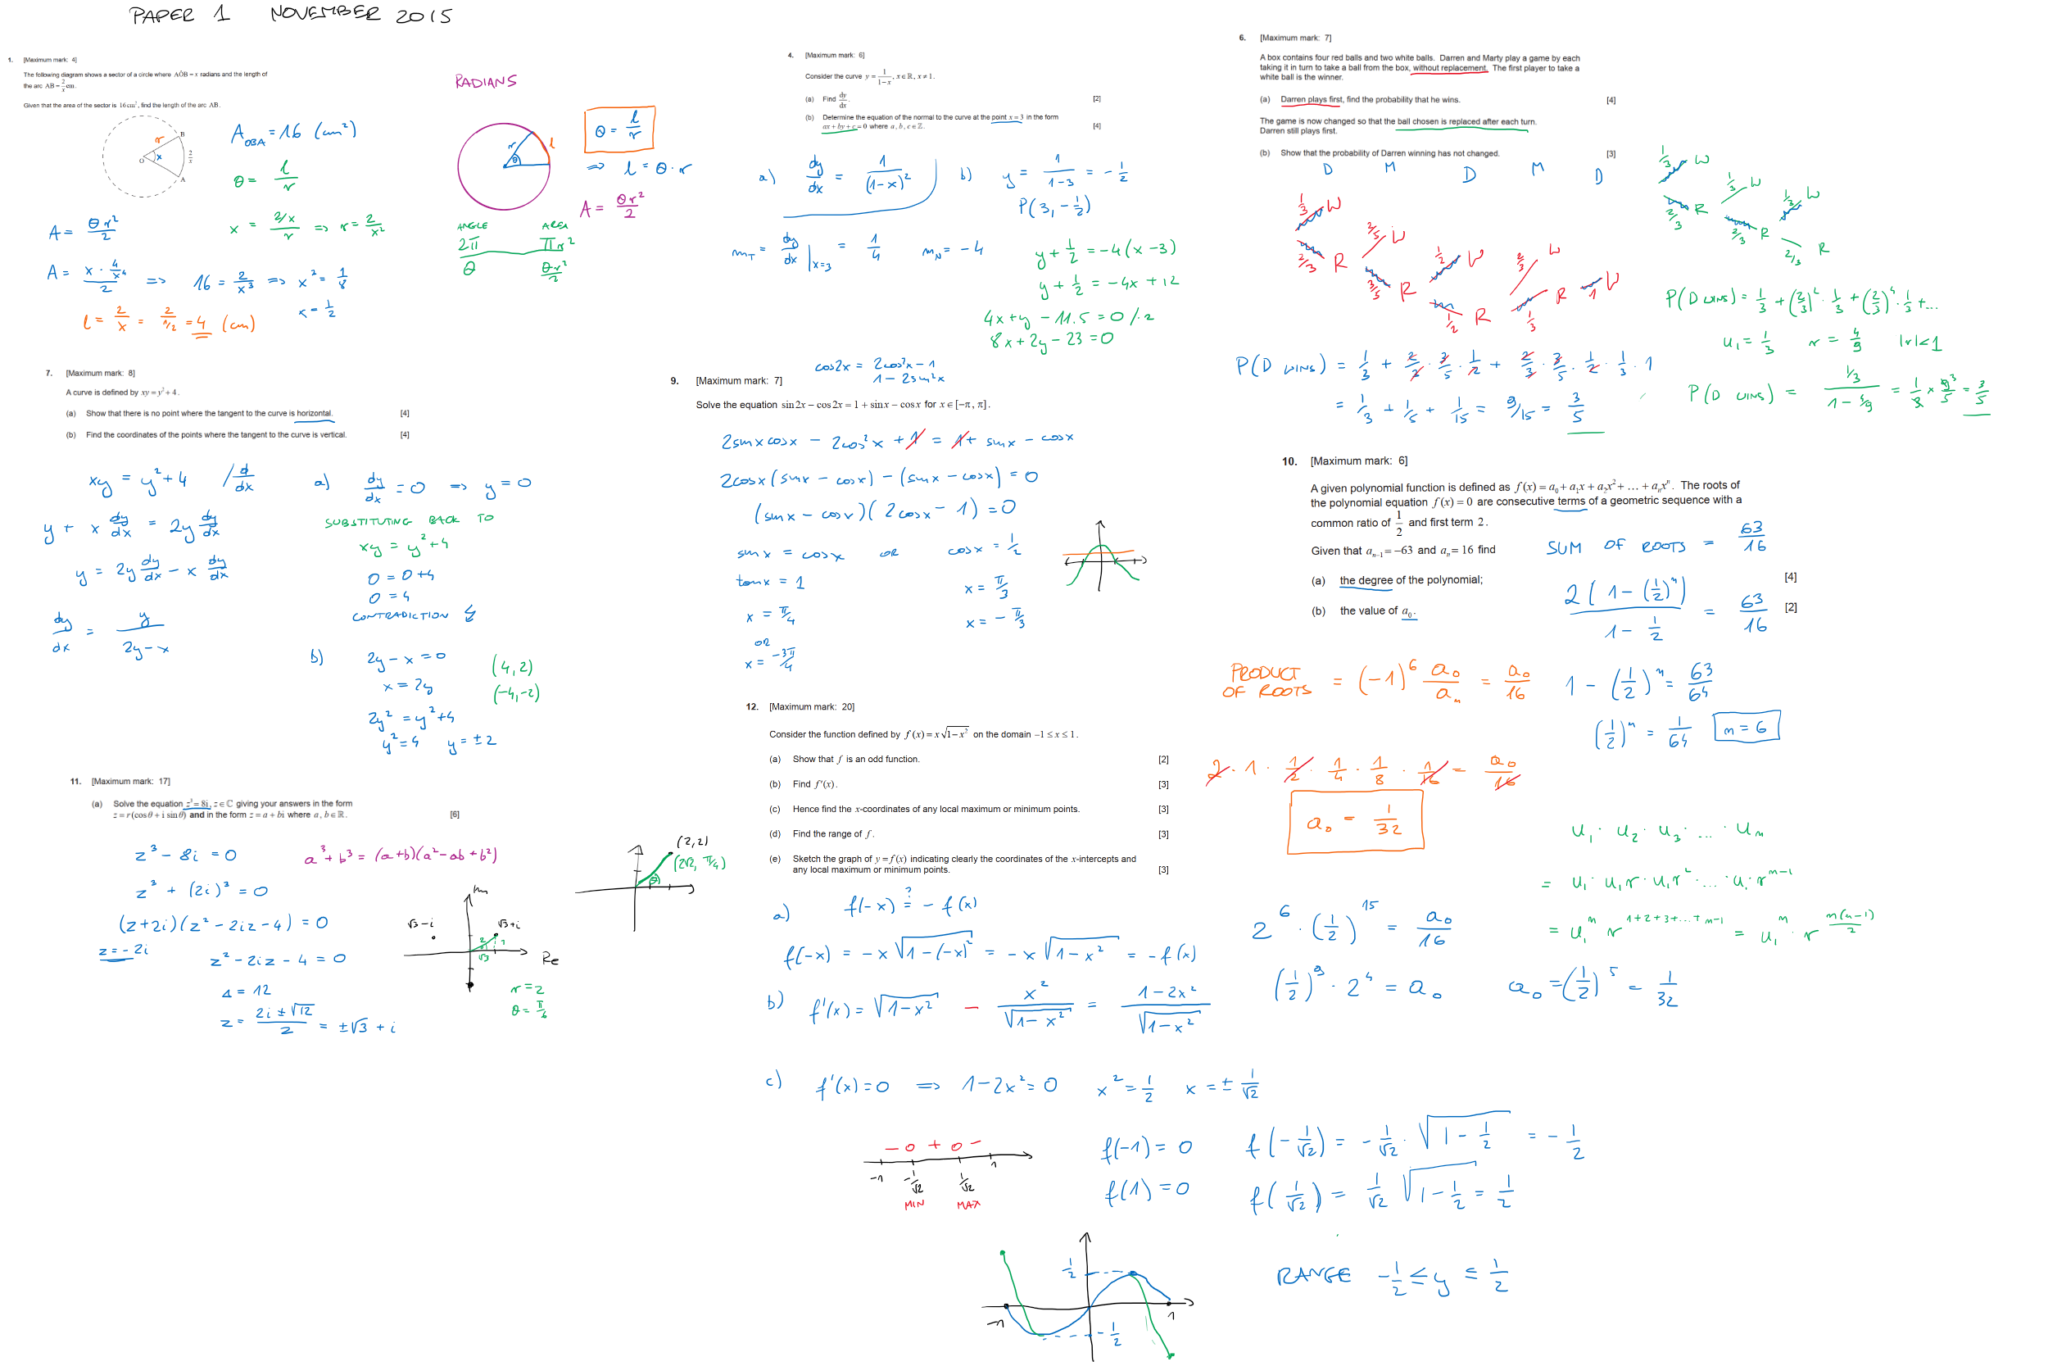 PAPER 1 NOVEMBER 2015
1. [Maximum mark: 4]
The following diagram shows a sector of a circle where AÔB = x radians and the length of
the arc AB = 2/x cm.
Given that the area of the sector is 16 cm², find the length of the arc AB.
r
B
x
O
A
2/x
A_OBA = 16 (cm²)
θ = l/r
x = (2/x)/r ⇒ r = 2/x²
A = θr²/2
A = (x · 4/x⁴)/2 ⇒ 16 = 2/x³ ⇒ x³ = 1/8
x = 1/2
l = 2/x = 2/(1/2) = 4 (cm)
RADIANS
r
l
θ
θ = l/r
⇒ l = θ · r
A = θr²/2
ANGLE AREA
2π πr²
θ θr²/2
4. [Maximum mark: 6]
Consider the curve y = 1/(1−x), x ∈ ℝ, x ≠ 1.
(a) Find dy/dx. [2]
(b) Determine the equation of the normal to the curve at the point x = 3 in the form
ax + by + c = 0 where a, b, c ∈ ℤ. [4]
a) dy/dx = 1/(1−x)²
b) y = 1/(1−3) = −1/2
P(3, −1/2)
m_T = dy/dx |x=3 = 1/4 m_N = −4
y + 1/2 = −4(x −3)
y + 1/2 = −4x + 12
4x + y − 11.5 = 0 /·2
8x + 2y − 23 = 0
6. [Maximum mark: 7]
A box contains four red balls and two white balls. Darren and Marty play a game by each
taking it in turn to take a ball from the box, without replacement. The first player to take a
white ball is the winner.
(a) Darren plays first, find the probability that he wins. [4]
The game is now changed so that the ball chosen is replaced after each turn.
Darren still plays first.
(b) Show that the probability of Darren winning has not changed. [3]
D M D M D
1/3 W
2/3 R
2/5 W
3/5 R
1/2 W
1/2 R
2/3 W
1/3 R
1 W
1/3 W
2/3 R
1/3 W
2/3 R
1/3 W
2/3 R
P(D WINS) = 1/3 + 2/3 · 3/5 · 1/2 + 2/3 · 3/5 · 1/2 · 1/3 · 1
= 1/3 + 1/5 + 1/15 = 9/15 = 3/5
P(D WINS) = 1/3 + (2/3)² · 1/3 + (2/3)⁴ · 1/3 + ...
u₁ = 1/3 r = 4/9 |r|<1
P(D WINS) = (1/3)/(1 − 4/9) = 1/3 × 9³/5 = 3/5
7. [Maximum mark: 8]
A curve is defined by xy = y² + 4.
(a) Show that there is no point where the tangent to the curve is horizontal. [4]
(b) Find the coordinates of the points where the tangent to the curve is vertical. [4]
xy = y² + 4 / d/dx
y + x dy/dx = 2y dy/dx
y = 2y dy/dx − x dy/dx
dy/dx = y/(2y − x)
a) dy/dx = 0 ⇒ y = 0
SUBSTITUTING BACK TO
xy = y² + 4
0 = 0 + 4
0 = 4
CONTRADICTION
b) 2y − x = 0
x = 2y
2y² = y² + 4
y² = 4 y = ±2
(4, 2)
(−4, −2)
cos2x = 2cos²x − 1
1 − 2sin²x
9. [Maximum mark: 7]
Solve the equation sin 2x − cos 2x = 1 + sin x − cos x for x ∈ [−π, π].
2sinxcosx − 2cos²x + 1 = 1 + sinx − cosx
2cosx(sinx − cosx) − (sinx − cosx) = 0
(sinx − cosx)(2cosx − 1) = 0
sinx = cosx OR cosx = 1/2
tanx = 1 x = π/3
x = π/4 x = −π/3
OR
x = −3π/4
10. [Maximum mark: 6]
A given polynomial function is defined as f(x) = a₀ + a₁x + a₂x² + … + aₙxⁿ. The roots of
the polynomial equation f(x) = 0 are consecutive terms of a geometric sequence with a
common ratio of 1/2 and first term 2.
Given that aₙ₋₁ = −63 and aₙ = 16 find
(a) the degree of the polynomial; [4]
(b) the value of a₀. [2]
SUM OF ROOTS = 63/16
2(1 − (1/2)ⁿ)/(1 − 1/2) = 63/16
1 − (1/2)ⁿ = 63/64
(1/2)ⁿ = 1/64 n = 6
PRODUCT OF ROOTS = (−1)⁶ a₀/aₙ = a₀/16
2 · 1 · 1/2 · 1/4 · 1/8 · 1/16 = a₀/16
a₀ = 1/32
u₁ · u₂ · u₃ · ... · uₙ
= u₁ · u₁r · u₁r² · ... · u₁ · rⁿ⁻¹
= u₁ⁿ r^(1+2+3+...+n−1) = u₁ⁿ · r^(n(n−1)/2)
2⁶ · (1/2)¹⁵ = a₀/16
(1/2)⁹ · 2⁴ = a₀ a₀ = (1/2)⁵ = 1/32
11. [Maximum mark: 17]
(a) Solve the equation z³ = 8i, z ∈ ℂ giving your answers in the form
z = r(cos θ + i sin θ) and in the form z = a + bi where a, b ∈ ℝ. [6]
z³ − 8i = 0
z³ + (2i)³ = 0
(z+2i)(z² − 2iz − 4) = 0
z = −2i z² − 2iz − 4 = 0
Δ = 12
z = (2i ± √12)/2 = ±√3 + i
a³ + b³ = (a+b)(a² − ab + b²)
Im
√3 − i
√3 + i
2
1
√3
Re
r = 2
θ = π/6
(2, 2)
(2√2, π/4)
12. [Maximum mark: 20]
Consider the function defined by f(x) = x√(1−x²) on the domain −1 ≤ x ≤ 1.
(a) Show that f is an odd function. [2]
(b) Find f′(x). [3]
(c) Hence find the x-coordinates of any local maximum or minimum points. [3]
(d) Find the range of f. [3]
(e) Sketch the graph of y = f(x) indicating clearly the coordinates of the x-intercepts and
any local maximum or minimum points. [3]
a) f(−x) ?= −f(x)
f(−x) = −x √(1−(−x)²) = −x √(1−x²) = −f(x)
b) f'(x) = √(1−x²) − x²/√(1−x²) = (1−2x²)/√(1−x²)
c) f'(x) = 0 ⇒ 1−2x² = 0 x² = 1/2 x = ± 1/√2
− 0 + 0 −
−1 −1/√2 1/√2 1
MIN MAX
f(−1) = 0 f(−1/√2) = −1/√2 · √(1 − 1/2) = −1/2
f(1) = 0 f(1/√2) = 1/√2 √(1 − 1/2) = 1/2
RANGE −1/2 ≤ y ≤ 1/2
1/2
−1
1
−1/2